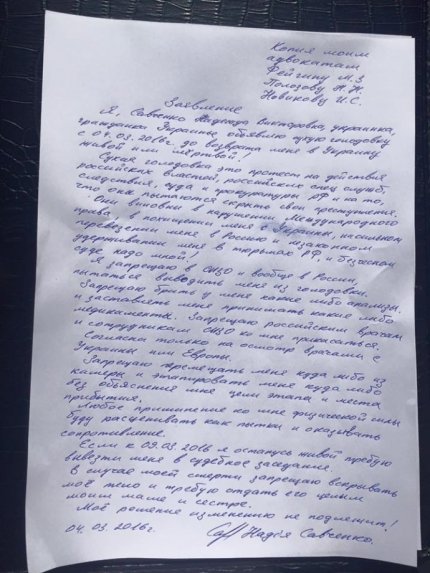 Копия моим
адвокатам
Фейгину М.З
Полозову Н.Н.
Новикову И.С.
Заявление
Я, Савченко Надежда Викторовна, украинка,
гражданка Украины, объявляю сухую голодовку
с 04.03.2016г. до возврата меня в Украину
живой или мертвой!
Сухая голодовка – это протест на действия
российских властей, российских спец служб,
следствия, суда и прокуратуры РФ и на то,
что они пытаются скрыть свои преступления.
Они виновны в нарушении Международного
права, в похищении меня с Украины, насильном
перевозении меня в Россию и незаконном
удерживании меня в тюрьмах РФ, и безчесном
суде надо мной!
Я запрещаю в СИЗО и вообще в России,
пытаться выводить меня из голодовки.
Запрещаю брать у меня какие либо анализы.
и заставлять меня принимать какие либо
медикаменты. Запрещаю российским врачам
и сотрудникам СИЗО ко мне прикасаться.
Согласна только на осмотр врачами с
Украины или Европы.
Запрещаю перемещать меня куда либо из
камеры и этапировать меня куда либо
без объяснения мне цели этапа и места
прибытия.
Любое применение ко мне физической силы
буду расценивать как пытки и оказывать
сопротивление.
Если к 09.03.2016 я останусь живой требую
вывезти меня в судебное заседание.
В случае моей смерти запрещаю вскрывать
моё тело и требую отдать его целым
моим маме и сестре.
Моё решение изменению не подлежит!
04.03.2016г. Надія Савченко.